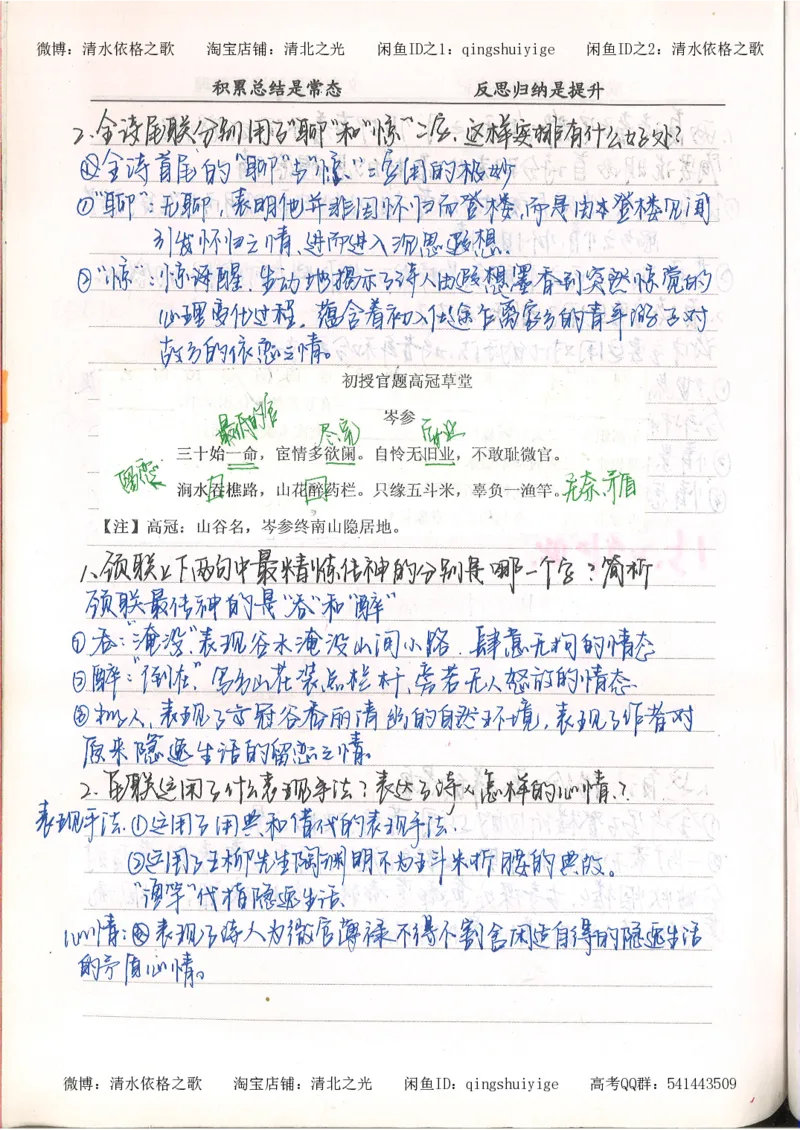 微博：清水依格之歌 淘宝店铺：清北之光 闲鱼ID之1：qingshuiyige 闲鱼ID之2：清水依格之歌
积累总结是常态 反思归纳是提升
2.全诗尾联分别用了"聊"和"惊"二字，这样安排有什么好处？
④全诗首尾的"聊"与"惊"二字用的极妙
①"聊"：无聊，表明他并非因怀归而登楼，而是由本登楼见闻
引发怀归之情，进而进入沉思遐想。
②"惊"：惊讶醒，生动地揭示了诗人由遐想乡到突然惊觉的
心理变化过程，蕴含着初入仕途乍离家乡的青年游子对
故乡的依恋之情。
初授官题高冠草堂
岑参
最低的官 尽完 旧业
三十始一命，宦情多欲阑。自怜无旧业，不敢耻微官。
留恋
涧水吞樵路，山花醉药栏。只缘五斗米，辜负一渔竿。无奈、矛盾
【注】高冠：山谷名，岑参终南山隐居地。
1.颔联上下两句中最精炼传神的分别是哪一个字？简析
颔联最传神的是"吞"和"醉"
①吞："淹没"表现谷水淹没山间小路，肆意无拘的情态
②醉："倒在"写山花装点栏杆，旁若无人怒放的情态
③拟人，表现了高冠谷秀丽清幽的自然环境，表现了作者对
原来隐逸生活的留恋之情。
2.尾联运用了什么表现手法？表达了诗人怎样的心情？
表现手法：①运用了用典和借代的表现手法.
②运用了五柳先生陶渊明不为五斗米折腰的典故。
"渔竿"代指隐逸生活.
心情：③表现了诗人为微官薄禄不得不割舍闲适自得的隐逸生活
的矛盾心情。
微博：清水依格之歌 淘宝店铺：清北之光 闲鱼ID：qingshuiyige 高考QQ群：541443509